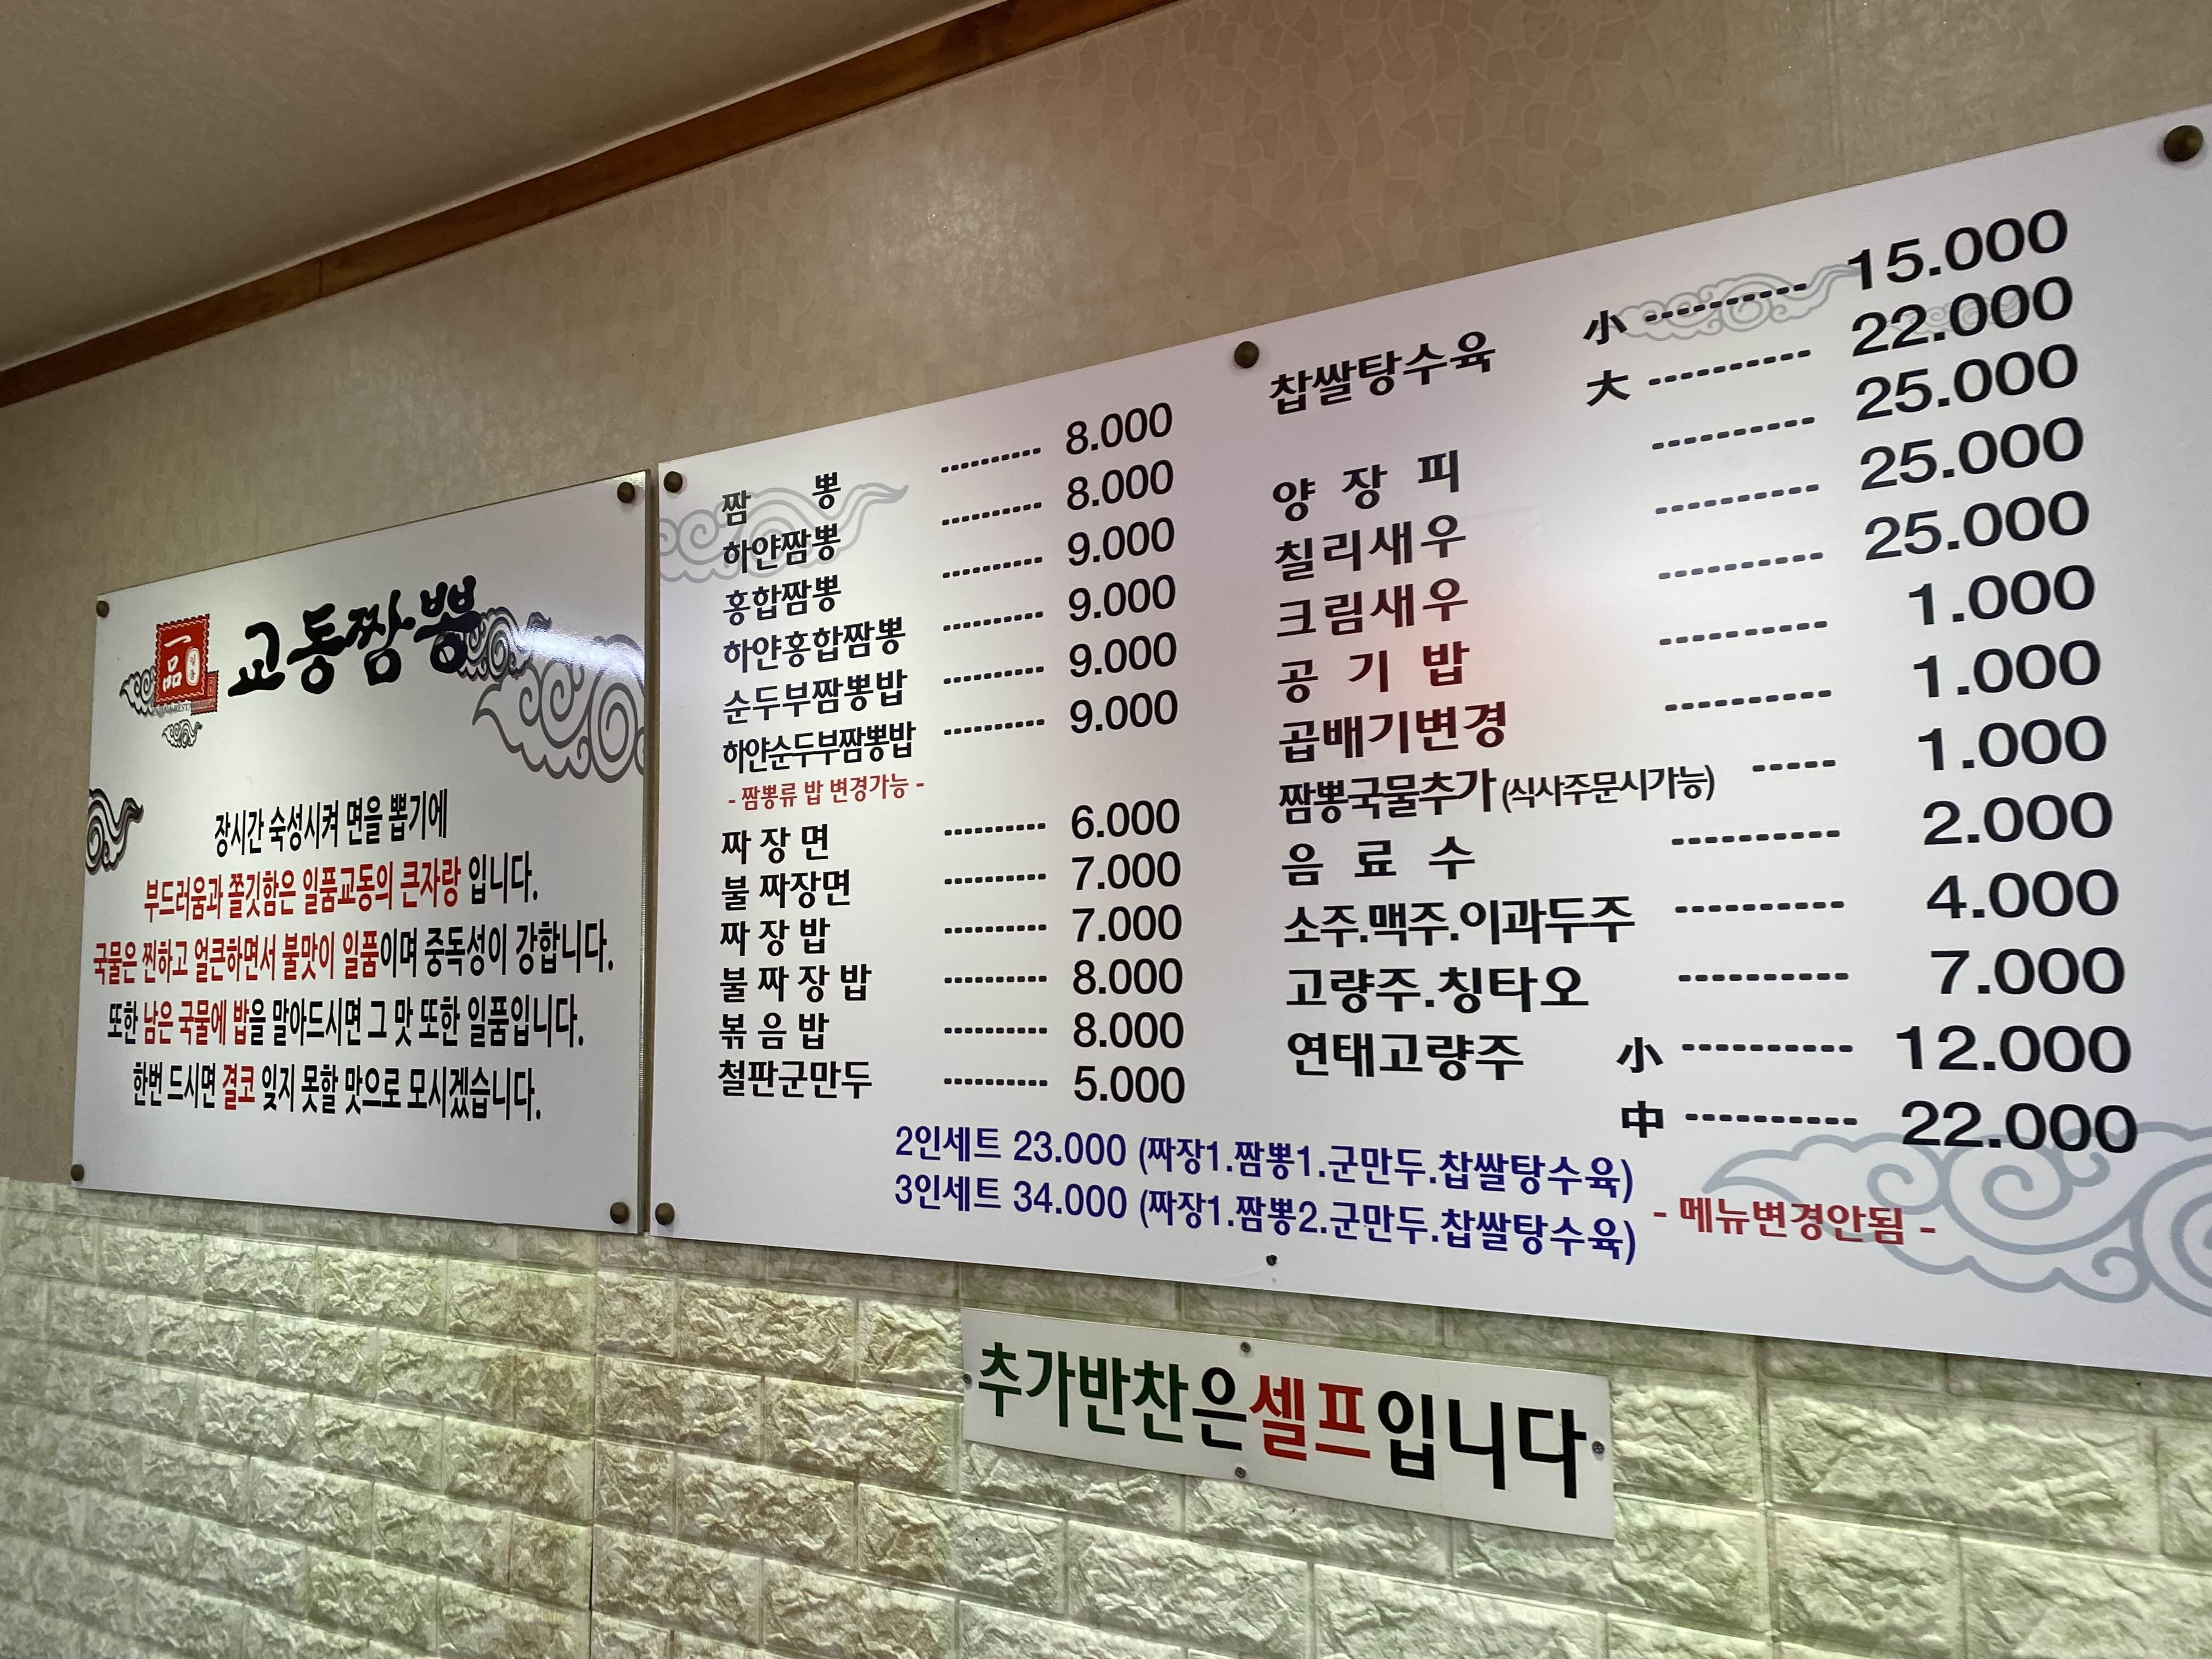 一品
교동짬뽕
장시간 숙성시켜 면을 뽑기에
부드러움과 쫄깃함은 일품교동의 큰자랑 입니다.
국물은 찐하고 얼큰하면서 불맛이 일품이며 중독성이 강합니다.
또한 남은 국물에 밥을 말아드시면 그 맛 또한 일품입니다.
한번 드시면 결코 잊지 못할 맛으로 모시겠습니다.
짬 뽕 ---------- 8.000
하얀짬뽕 ---------- 8.000
홍합짬뽕 ---------- 9.000
하얀홍합짬뽕 ---------- 9.000
순두부짬뽕밥 ---------- 9.000
하얀순두부짬뽕밥 ---------- 9.000
- 짬뽕류 밥 변경가능 -
짜 장 면 ---------- 6.000
불 짜장면 ---------- 7.000
짜 장 밥 ---------- 7.000
불 짜 장 밥 ---------- 8.000
볶 음 밥 ---------- 8.000
철판군만두 ---------- 5.000
찹쌀탕수육 小 ---------- 15.000
大 ---------- 22.000
양 장 피 ---------- 25.000
칠리새우 ---------- 25.000
크림새우 ---------- 25.000
공 기 밥 ---------- 1.000
곱배기변경 ---------- 1.000
짬뽕국물추가 (식사주문시가능) ----- 1.000
음 료 수 ---------- 2.000
소주.맥주.이과두주 ---------- 4.000
고량주.칭타오 ---------- 7.000
연태고량주 小 ---------- 12.000
中 ---------- 22.000
2인세트 23.000 (짜장1.짬뽕1.군만두.찹쌀탕수육)
3인세트 34.000 (짜장1.짬뽕2.군만두.찹쌀탕수육)
- 메뉴변경안됨 -
추가반찬은셀프입니다